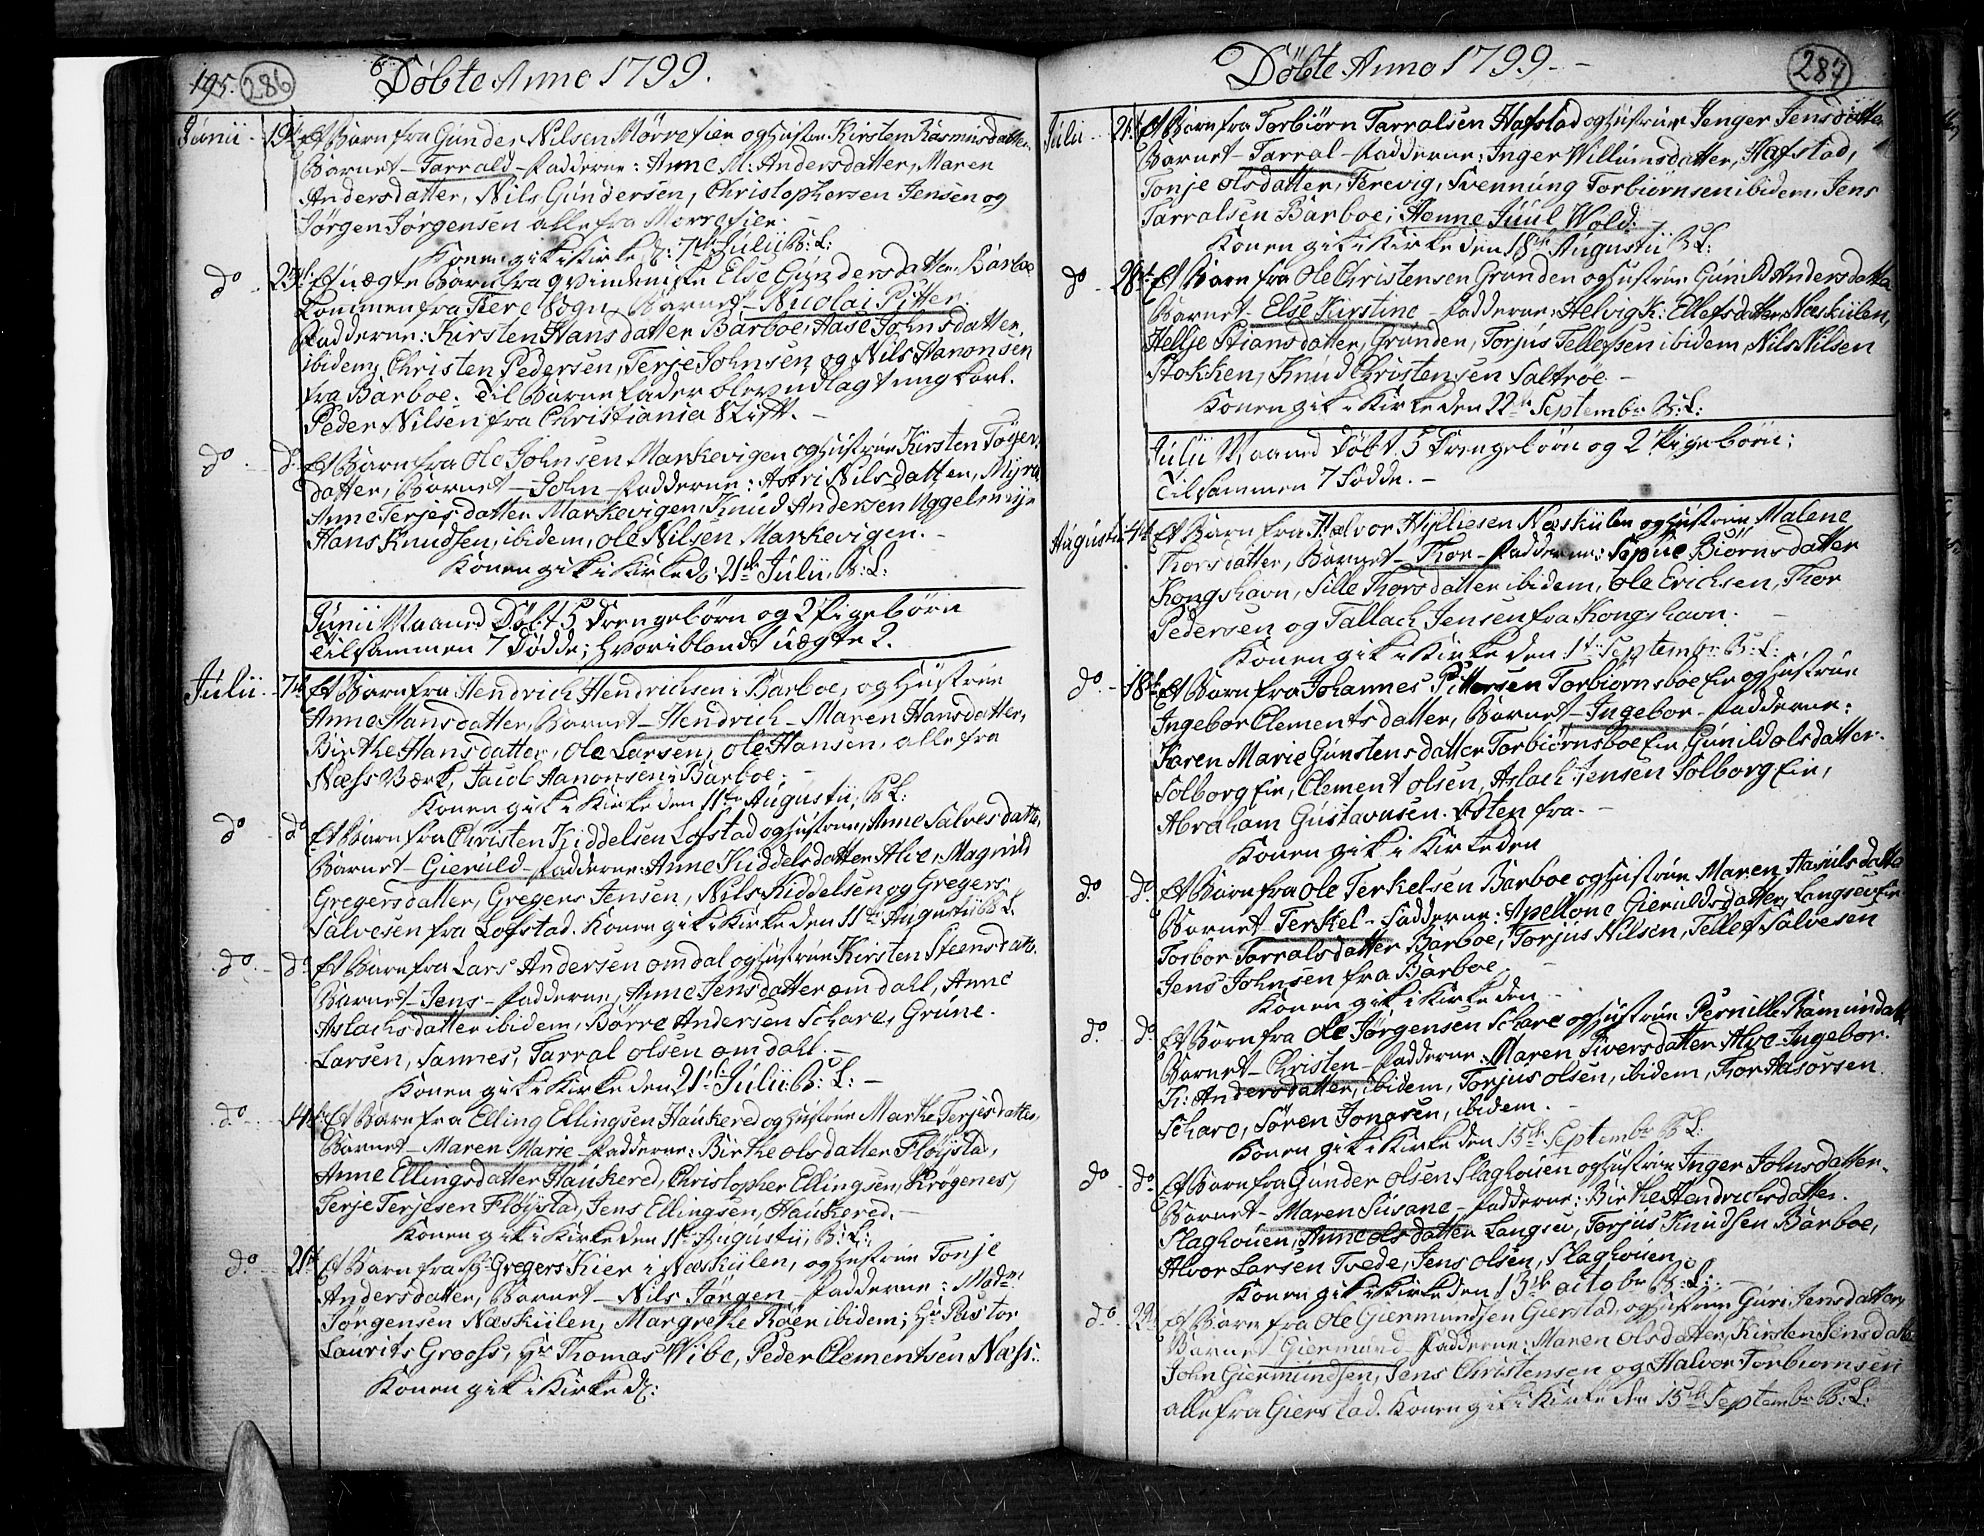 195. 286
Döbte Anno 1799.
Junii 19de Et Barn fra Gunder Nilsen Mörrefier og hustrue Kirsten Rasmusdatter
Barnet - Tarrald - Fadderne: Anne M: Andersdatter, Maren
Andersdatter, Nils Gundersen, Christophersen Jensen og
Jörgen Jörgensen alle fra Morrefier. -
Konen gik i Kirke d: 7de Julii B: L:
do 23de Et uægte Barn fra qvindemske Else Gundersdatter Barboe
kommen fra Fiere Sogn, Barnet - Nicolai Pitter.
Fadderne: Kirsten Hansdatter Barboe, Aase Johnsdatter,
ibidem, Christen Pedersen, Terje Johnsen, og Nils Hanonsen
fra Barboe. Til Barnefader blev udlagt ung karl.
Peder Nilsen fra Christiania Stift. -
do do Et Barn fra Ole Johnsen Markevigen og hustrue Kirsten Töger
datter, Barnet - John - Fadderne: Astri Nilsdatter, Myra
Anne Terjesdatter Markevigen, Knud Andersen Uggelmyr
Hans Knudsen, ibidem, Ole Nilsen Markevigen. -
Konen gik i Kirke d: 21de Julii, B: L:
Junii Maaned Döbt 5 Drengebörn og 2 Pigebörn
Tilsammen 7 Födde; hvoriblandt uægte 2.
Julii 7de Et Barn fra Hendrich Hendrichsen i Barboe, og hustrue
Anne Hansdatter, Barnet - Hendrich - Maren Hansdatter,
Birthe Hansdatter, Ole Larsen, Ole Hansen, alle fra
Næss Værk, Jacob Aanonsen i Barboe. -
Konen gik i Kirke den 11te Augustii, B: L:
do do Et Barn fra Christen Kiddelsen Lofstad og hustrue, Anne Salvesdatter,
Barnet - Gieruld - Fadderne: Anne Kiddelsdatter Alve, Magnild
Gregersdatter, Gregers Jensen, Nils Kiddelsen og Gregers
Salvesen fra Lofstad. Konen gik i Kirke den 11te Augustii B: L:
do do Et Barn fra Lars Andersen omdal og hustrue Kirsten Steensdatt.
Barnet - Jens - Fadderne, Anne Jensdatter omdahl, Anne
Aslachsdatter ibidem, Börre Andersen Schare, Grune.
Larsen, Sannes, Tarral Olsen omdahl. -
Konen gik i Kirke den 21de Julii B: L: -
do 14de Et Barn fra Elling Ellingsen Haukered og hustrue Marthe Terjesdatter,
Barnet - Maren Marie - Fadderne: Birthe Olsdatter Flöistad,
Anne Ellingsdatter Haukered, Christopher Ellingsen, Krögenes,
Terje Terjesen Flöistad, Jens Ellingsen, Haukered. -
Konen gik i Kirke den 11te Augustii, B: L:
do 21de Et Barn fra Gregers Kier i Næskiilen, og hustrue Tonje
Andersdatter, Barnet - Nils Jörgen - Fadderne: Madme
Jörgensen Næskiilen, Margrethe Röer ibidem; Hr Pastor
Laurits Grooss, Hr Thomas Wibe, Peder Clementsen Næss.
Konen gik i Kirke d:
287
Döbte Anno 1799. -
Julii 21de Et Barn fra Torbiörn Tarralsen Hafstad og hustrue Jenger Jensdatter
Barnet - Tarral - Fadderne: Inger Willumsdatter, Hafstad,
Tonje Olsdatter, Terevig, Svennung Torbiörnsen ibidem, Jens
Tarralsen Barboe; Hanne Juul Wold. -
Konen gik i Kirke den 18de Augustii B: L:
do 28de Et Barn fra Ole Christensen Grunden og hustrue Gunild Andersdatter
Barnet - Else Kirstine - Fadderne: Helvig K: Ellefsdatter, Næskiilen,
Hellje Stiansdatter, Grunden, Torjus Tellefsen ibidem, Nils Nilsen
Stokken, Knud Christensen Saltröe -
Konen gik i Kirke den 22de Septembr B: L:
Julii Maaned Döbt 5 Drengebörn og 2 Pigebörn;
Tilsammen 7 Födde. -
Augustii 4de Et Barn fra Halvor Hipliesen Næskiilen og hustrue Malene
Thorsdatter, Barnet - Thor - Fadderne: Sophie Biörnsdatter
Kongshavn, Sille Thorsdatter ibidem, Ole Erichsen, Thor
Pedersen og Tallach Jensen fra Kongshavn. -
Konen gik i Kirke den: 1te Septembr: B: L:
do 18de Et Barn fra Johannes Pittersen Torbiornsboefier og hustrue
Ingebor Clementsdatter, Barnet - Ingebor - Fadderne:
Karen Marie Gunstensdatter Torbiörnsboefier, Gunild Olsdatter.
Solborgfier, Clement Olsen, Aslach Jensen Solborgfier,
Abraham Gustavusen. Østen fra. -
Konen gik i Kirke den
do do Et Barn fra Ole Terkelsen Barboe og hustrue Maren Haiulsdatter
Barnet - Terkel - Fadderne: Apellone Gierulsdatter, Langsevfier
Torbor Tarralsdatter Barboe, Torjus Nilsen, Tellef Salvesen
Jens Johnsen fra Barboe. -
Konen gik i Kirke den
do do Et Barn fra Ole Jörgensen Schare og hustrue Pernille Ramundatt
Barnet - Christen - Fadderne: Maren Siversdatter Alve, Ingebor.
K: Andersdatter, ibidem, Torjus Olsen, ibidem, Thor Aasorsen
Schare, Sören Jonasen, ibidem. -
Konen gik i Kirke den 15de Septembr B: L:
do do Et Barn fra Gunder Olsen Slaghouen og hustrue Inger Johnsdatter.
Barnet - Maren Susane - Fadderne: Birthe Hendrichsdatter.
Slaghouen, Anne Olsdatter Langsev, Torjus Knudsen Barboe,
Alvor Larsen Tvede, Jens Olsen, Slaghouen,
Konen gik i Kirke den 13de octobr B: L: -
do 29de Et Barn fra Ole Giermundsen Gierstad, og hustrue Guri Jensdatter,
Barnet Giermund - Fadderne: Maren Olsdatter, Kirsten Jensdatter
John Giermundsen, Jens Christensen og Halvor Torbiornsen
alle fra Gierstad. Konen gik i Kirke den 15de Septembr B: L: